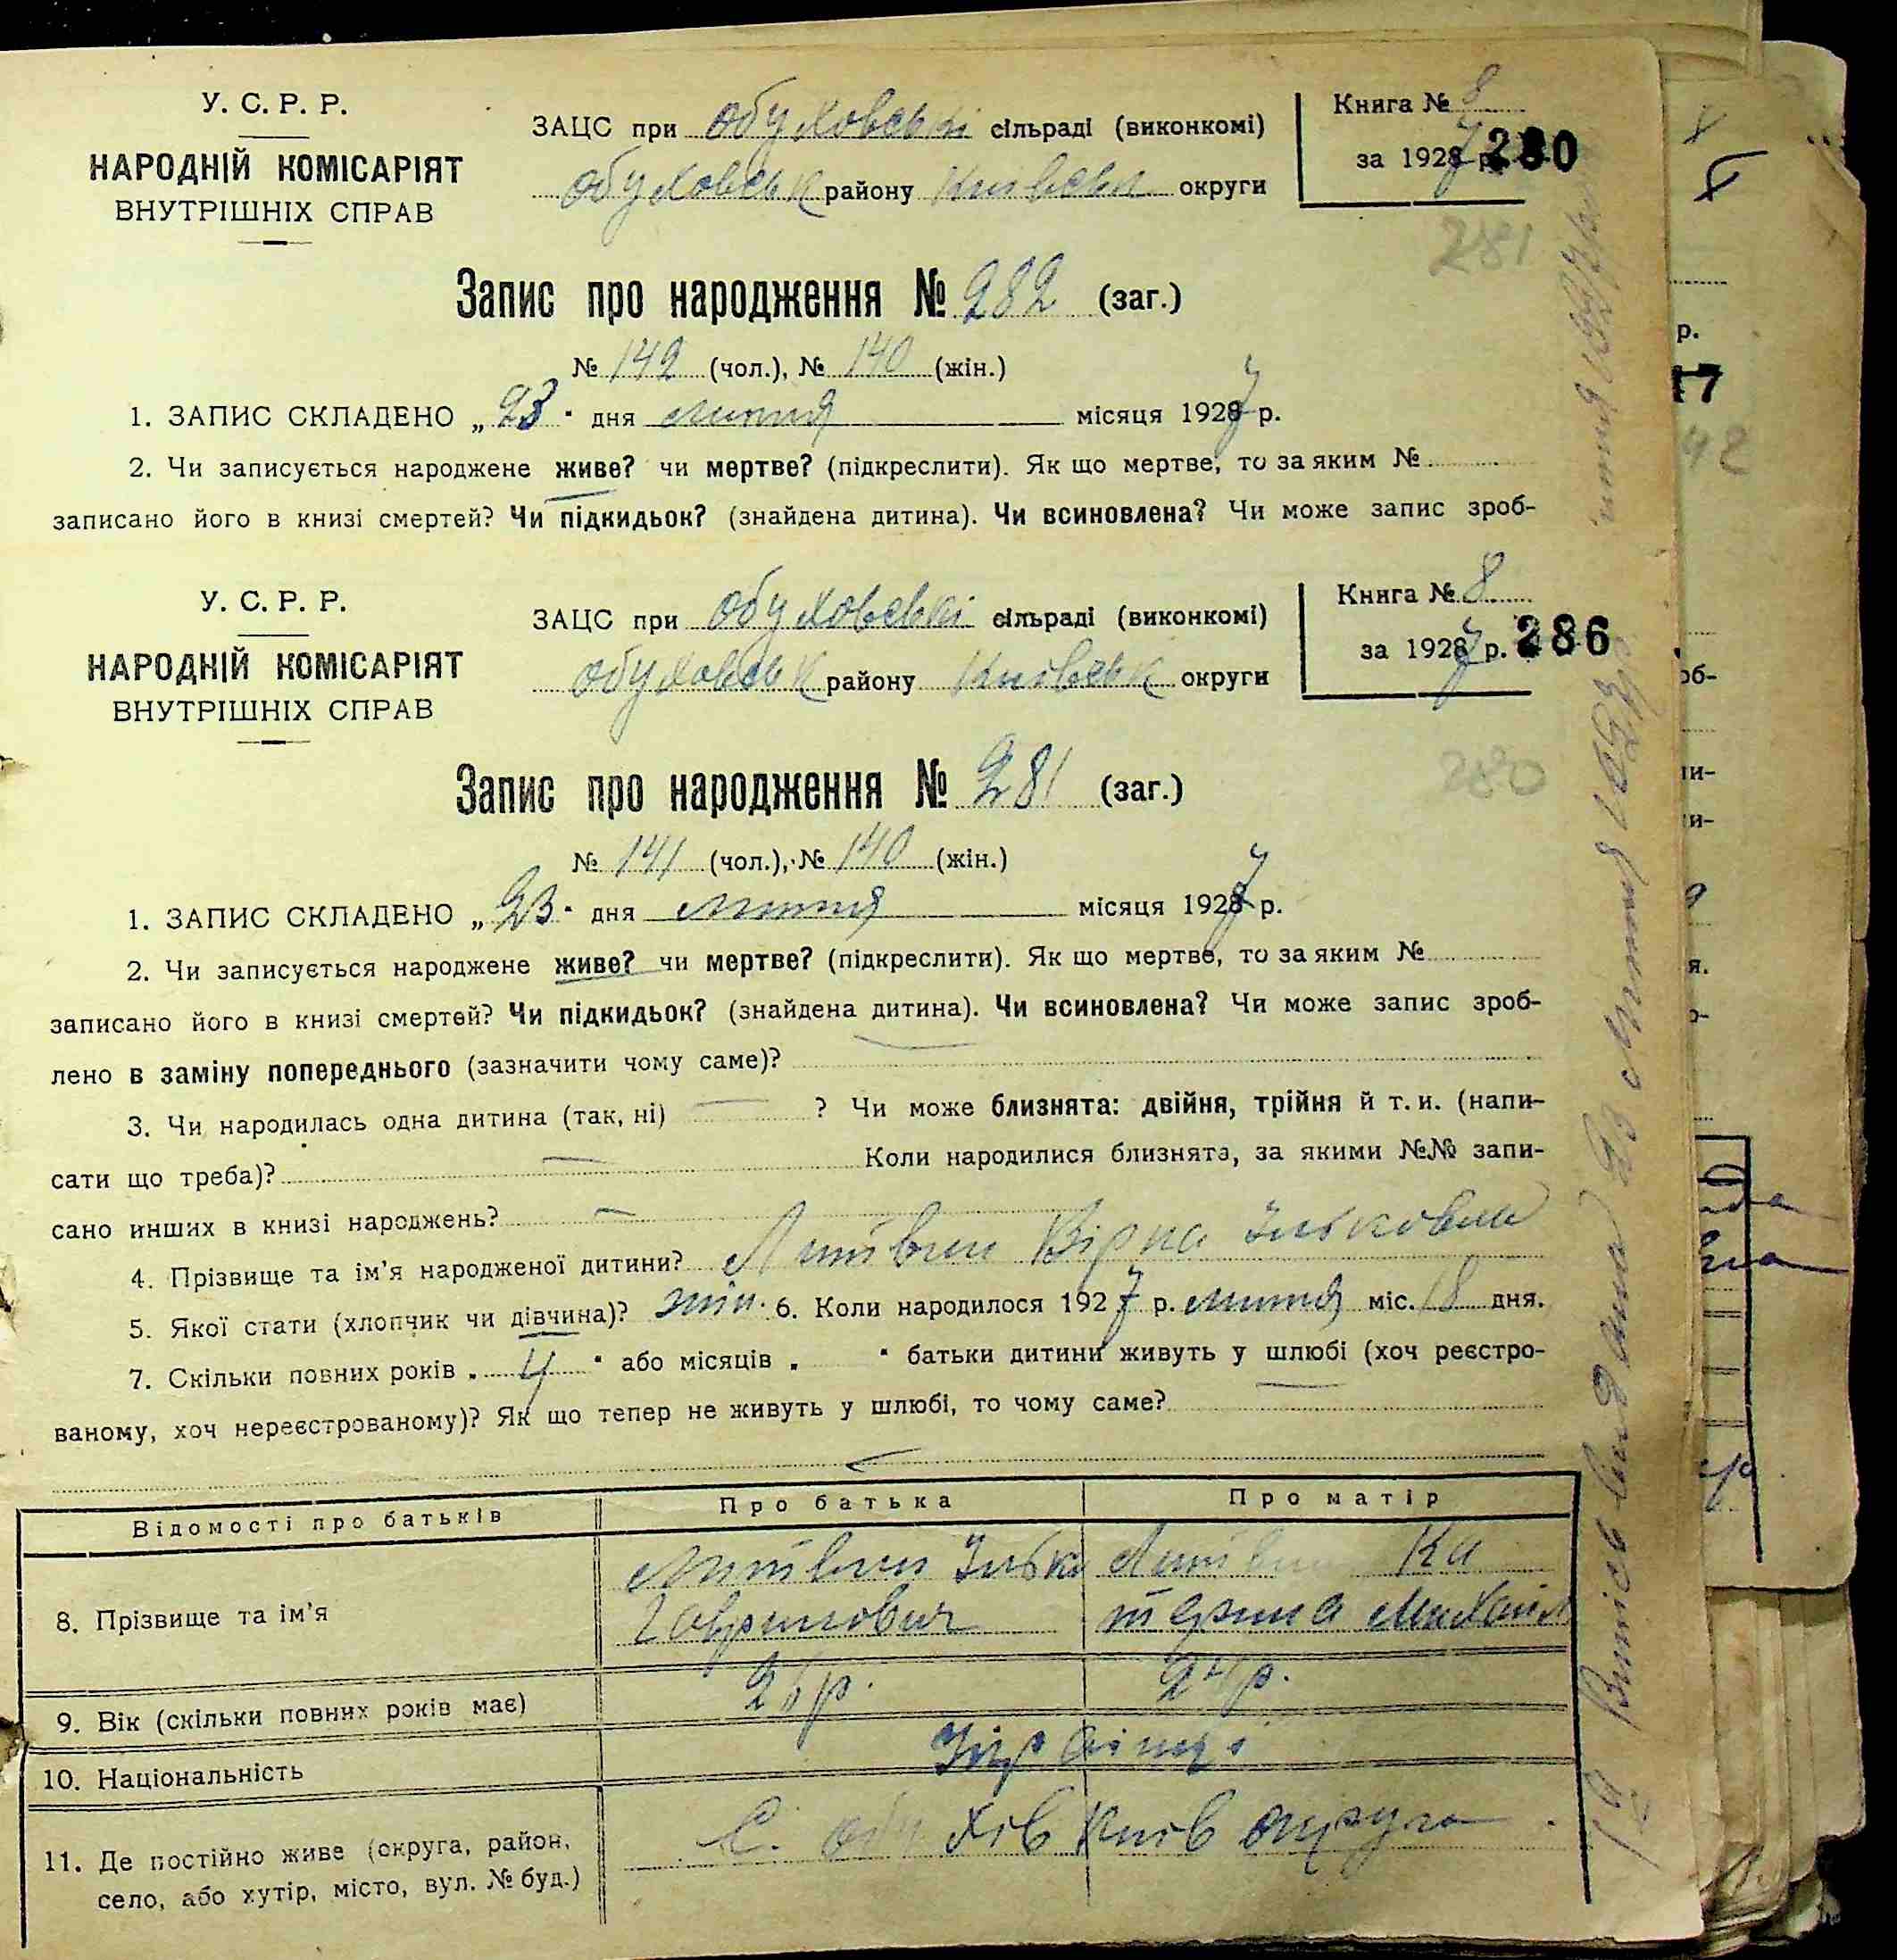 У. С. Р. Р.
НАРОДНІЙ КОМІСАРІЯТ
ВНУТРІШНІХ СПРАВ
ЗАЦС при Обуховські сільраді (виконкомі)
Обуховськ району Київськ округи
Книга № 8
за 1927 р. 280
281
Запис про народження № 282 (заг.)
№ 142 (чол.), № 140 (жін.)
1. ЗАПИС СКЛАДЕНО „23" дня липня місяця 1927 р.
2. Чи записується народжене живе? чи мертве? (підкреслити). Як що мертве, то за яким №
записано його в книзі смертей? Чи підкидьок? (знайдена дитина). Чи всиновлена? Чи може запис зроб-
У. С. Р. Р.
НАРОДНІЙ КОМІСАРІЯТ
ВНУТРІШНІХ СПРАВ
ЗАЦС при Обуховські сільраді (виконкомі)
Обуховськ району Київськ округи
Книга № 8
за 1927 р. 286
280
Запис про народження № 281 (заг.)
№ 141 (чол.), № 140 (жін.)
1. ЗАПИС СКЛАДЕНО „23" дня липня місяця 1927 р.
2. Чи записується народжене живе? чи мертве? (підкреслити). Як що мертве, то за яким №
записано його в книзі смертей? Чи підкидьок? (знайдена дитина). Чи всиновлена? Чи може запис зроб-
лено в заміну попереднього (зазначити чому саме)?
3. Чи народилась одна дитина (так, ні) — ? Чи може близнята: двійня, трійня й т. и. (напи-
сати що треба)? — Коли народилися близнята, за якими №№ запи-
сано инших в книзі народжень? —
4. Прізвище та ім'я народженої дитини? Литвин Вірка Ільковна
5. Якої стати (хлопчик чи дівчина)? жін. 6. Коли народилося 1927 р. липня міс. 18 дня.
7. Скільки повних років „ 4 " або місяців „ " батьки дитини живуть у шлюбі (хоч реєстро-
ваному, хоч нереєстрованому)? Як що тепер не живуть у шлюбі, то чому саме?
Відомості про батьків Про батька Про матір
8. Прізвище та ім'я
Литвин Ілько
Гаврилович
Литвин Ка
терина Михайл
9. Вік (скільки повних років має) 26 р. 24 р.
10. Національність Українці
11. Де постійно живе (округа, район,
село, або хутір, місто, вул. № буд.)
С. Обухів Київ округа